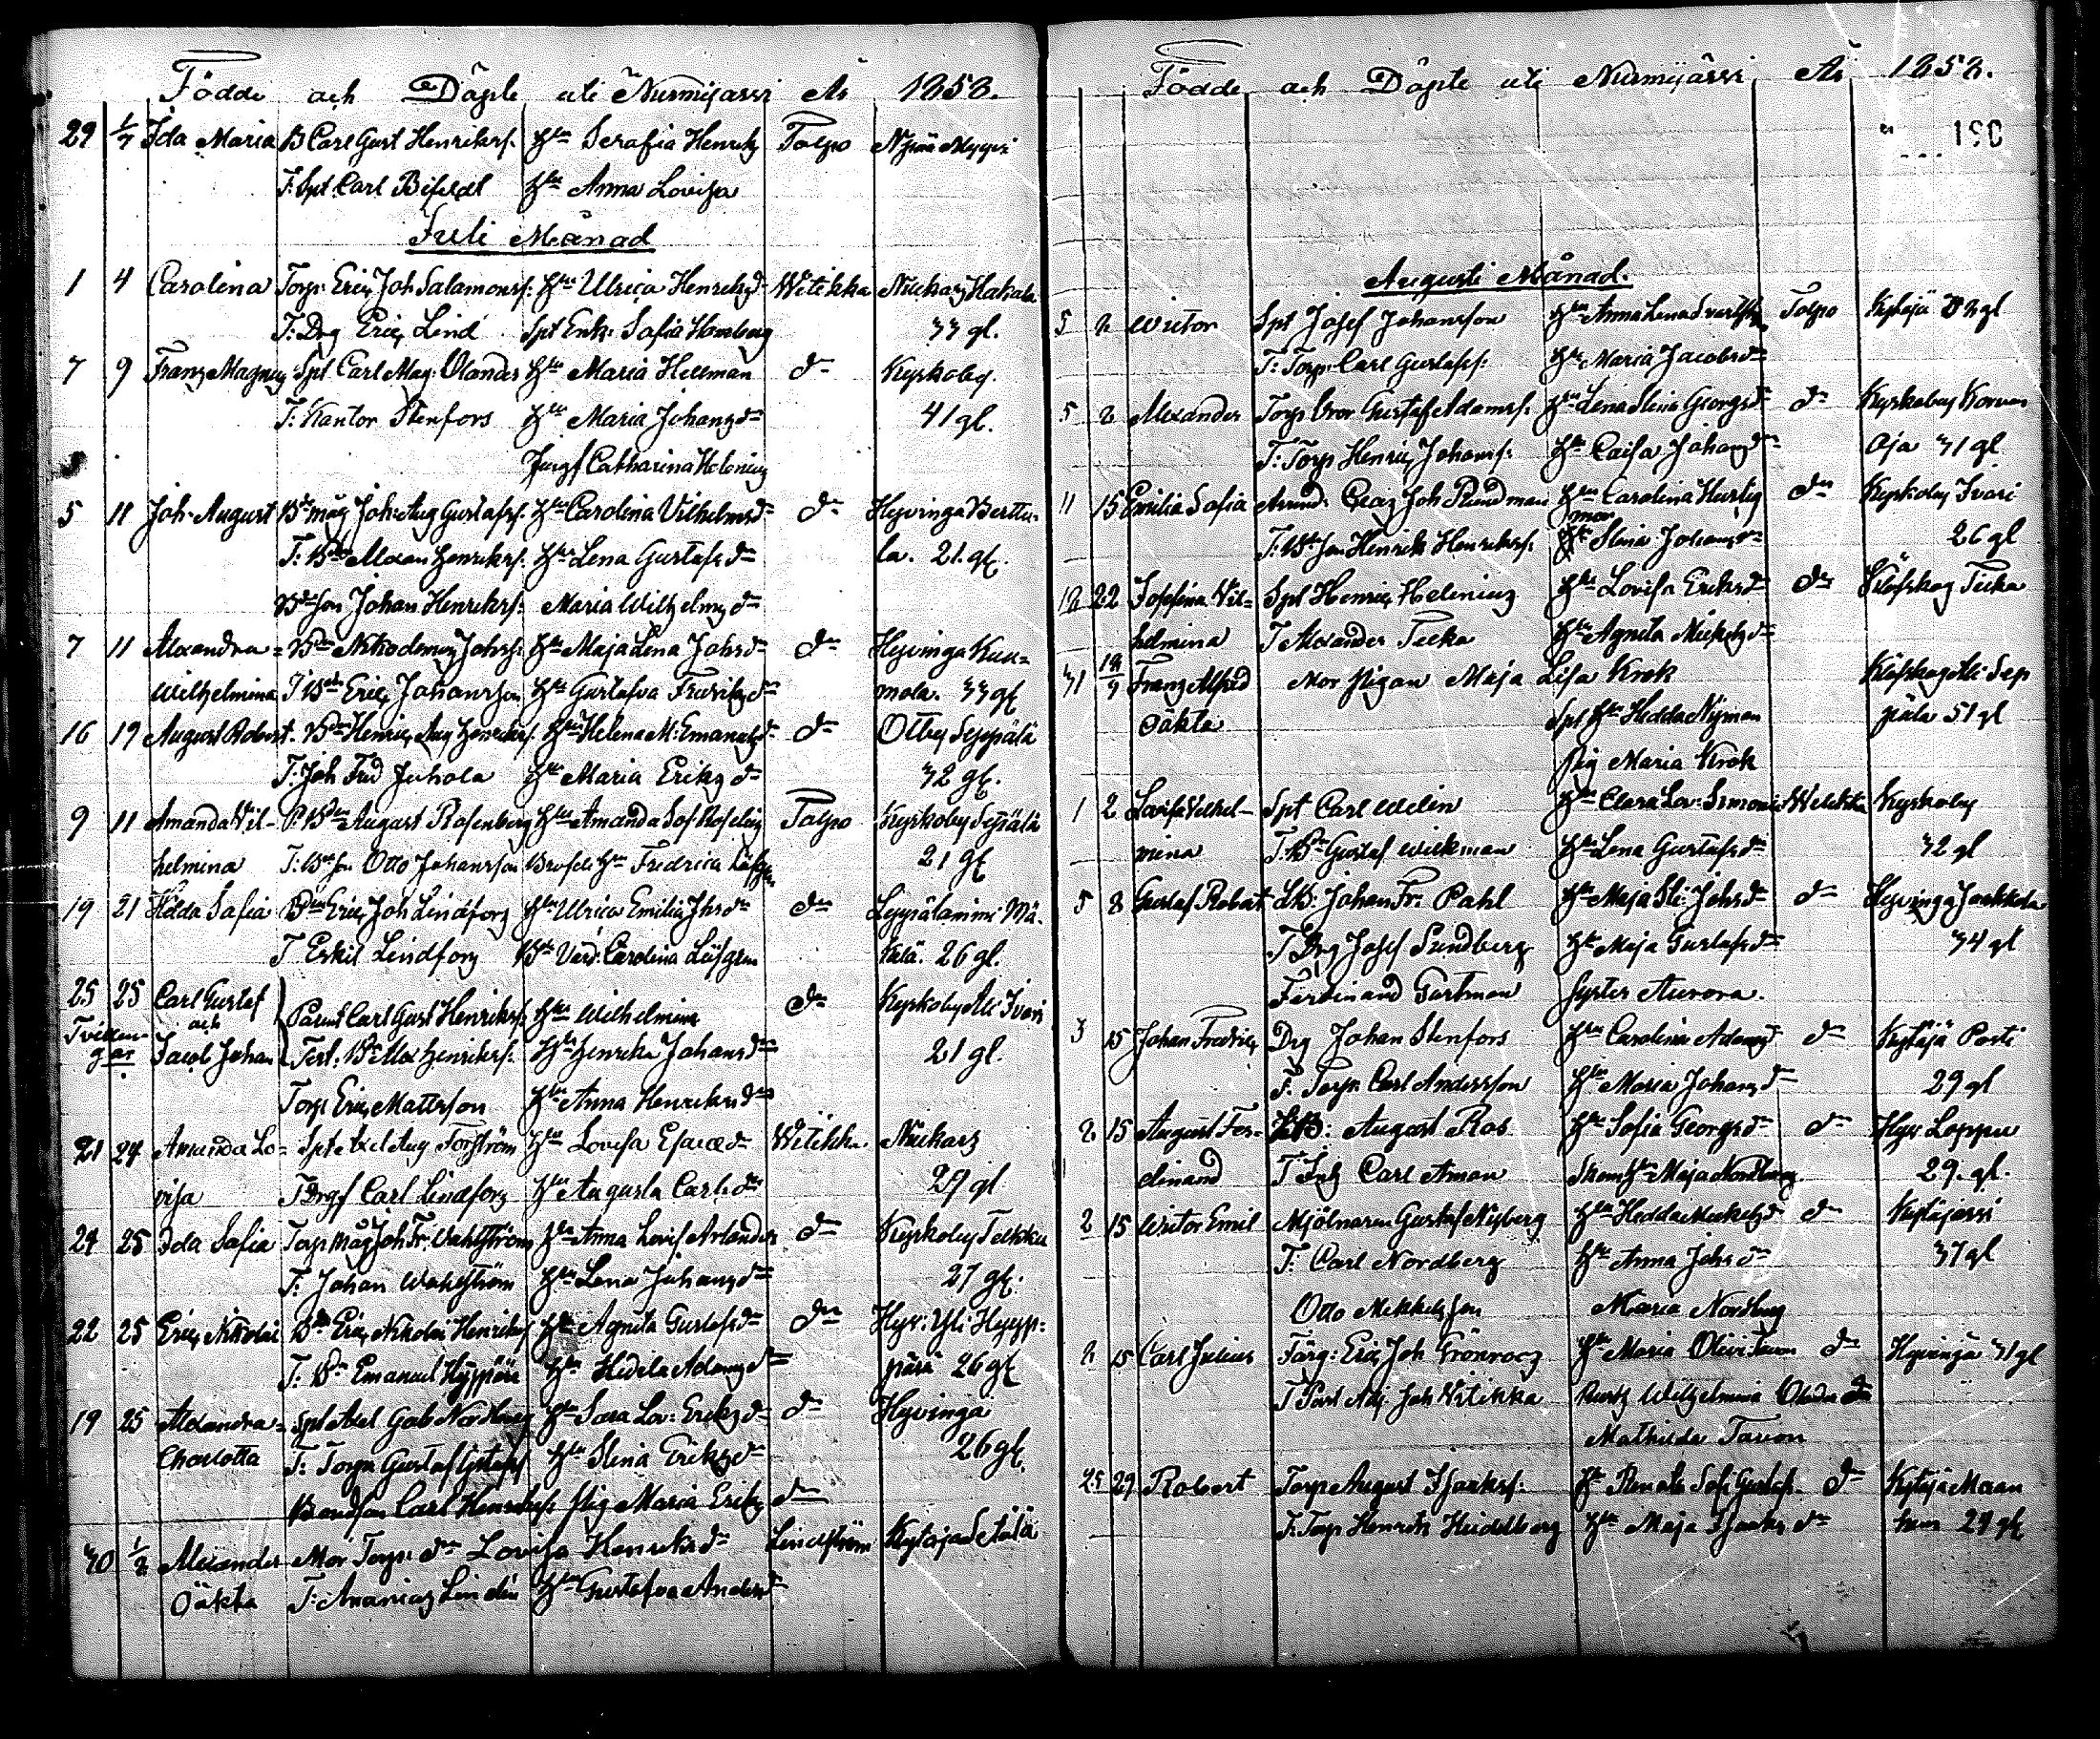 Födde och Döpte uti Nurmijärvi År 1858.
29 1/7 Ida Maria B Carl Gust Henrikss. Hu Serafia Henriks Tolpo Nĳniä Myyri
T: Spt Carl Bifeldt Hu Anna Lovisa
Juli Månad
1 4 Carolina Torp: Eric Joh Salamonss: Hu Ulrica Henriksd Witikka Nukars Hakala
T: Drg Eric Lind Spt Enk: Sofia Homberg 33 gl.
7 9 Frans Magnus Spt Carl Mag: Olander Hu Maria Hellman dn Kyrkoby.
T: Kantor Stenfors Hu Maria Johansdn 41 gl.
Jungf Catharina Helenius
5 11 Joh. August Bde måg Joh: Aug Gustafss. Hu Carolina Vilhelmsdn dn Hyvinga Berttu-
T: Bde Alexan Henrikss. Hu Lena Gustafsdn la. 21. gl.
Bdeson Johan Henrikss: Maria Wilhelmsdn
7 11 Alexandra- Bden Nikodemus Johss: Hu Maja Lena Johsdn dn Hyvinga Kau-
Wilhelmina T. Bde Eric Johansson Hu Gustafva Fredriksdn mola. 33 gl
16 19 August Robert. Bden Henric Aug Henrikss. Hu Helena M: Emanuelsd dn Ollby Seppälä
T: Joh Fred Juhola Hu Maria Eriksdn 32 gl.
9 11 Amanda Vil- P. Bden August Rosenberg Hu Amanda Sof. Roselius Tolpo Kyrkoby Sepälä
helmina T: Bdeson Otto Johansson Hu Fredrica Löfgren 21 gl
19 21 Hedda Sofia Bden Eric Joh Lindfors Hu Ulrica Emilia Jhsdn dn Leppälammi Mä-
T Eskil Lindfors Carolina Löfgren kelä. 26 gl.
25 25 Carl Gustaf
och
Tvillin- Parmt Carl Gust Henrikss: Hu Wilhelmina dn Kyrkoby Ali Ivari
gar Jacob Johan Test. Bde Alex Henrikss: Hu Henrika Johansdn 21 gl.
Torp Eric Mattsson Hu Anna Henriksdn
21 24 Amanda Lo- Spt Axel Aug Forsström Hu Lovisa Esaiædn Witikka Nukars
visa T Drgf Carl Lindfors Hu Augusta Carlsdn 29 gl
24 25 Ida Sofia Torp måg Joh Fr. Wahlström Hu Anna Lovis Arlander dn Kyrkoby Tekka
T: Johan Wahlström Hu Lena Johansdn 27 gl.
22 25 Eric Nikolai Bde Eric Nikolai Henrikss Hu Agneta Gustafsdn dn Hyv: Yli Hyyp-
T: Bn Emanuel Hyppörä Hu Hedda Adamsdn pärä 26 gl
19 25 Alexandra- Spt Axel Gab Nordberg Hu Sara Lov: Eriksdn dn Hyvinga
Charlotta T: Torp Gustaf Gustafss Hu Stina Eriksdn 26 gl.
Bondson Carl Henrikss: Pig Maria Eriks dn
30 1/8 Alexander Mor Torp: dn Lovisa Henriksdn Lindström Kytäjä Setälä
Oäkta T: Ananias Lindén Hu Gustafva Andersd
Födde och Döpte uti Nurmijärvi År 1858.
190
Augusti Månad.
5 8 Wictor Spt Josef Johansson Hu Anna Lena Tolpo Kytäjä gl
T: Torp: Carl Gustafss: Hu Maria Jacobsdn
5 8 Alexander Torp bror Gustaf Adamss. Hu Lena Stina Georgsdn dn Kyrkoby Korvan
T: Torp Henric Johanss: Hu Caisa Johansdn Oja 31 gl
11 15 Emilia Sofia Craig Joh Rundman Hu Carolina Hurtig dn Kyrkoby Ivari
man
T: Bdeson Henrik Henrikss: Hu Stina Johansdn 26 gl
18 22 Josefina Vil- Spt Henric Helenius Hu Lovisa Eriksdn dn Klöfskog Tecka
helmina T Alexander Tecka Hu Agneta Mickelsdn
31 18/9 Frans Alfred Mor Pigan Maja Lisa Krok Klöfskog Ali Sep
Oäkta Spt Hu Hedda Nyman pälä 51 gl
Pig Maria Krok
1 2 Lovisa Vilhel- Spt Carl Welin Hu Clara Lov: Simons Witikka Kyrkoby
mina T: Bde Gustaf Wickman Hu Lena Gustafsdn 32 gl
5 8 Gustaf Robert LB: Johan Fr. Pahl Hu Maja Sti. Johsdn dn Hyvinga Jaakkola
T Drg Josef Sundberg Hu Maja Gustafsdn 34 gl
Ferdinand Gustman Syster Aurora.
3 15 Johan Fredric Drg Johan Stenfors Hu Carolina Adamsd dn Kytäjä Porti
T: Torp Carl Andersson Hu Maria Johansdn 29 gl
2 15 August Fer- LB: August Ros Hu Sofia Georgsdn dn Hyv Loppu
dinand T Carl Aman Hu Maja Nordberg 29. gl.
2 15 Wictor Emil Mjölnaren Gustaf Nyberg Hu Hedda Mickelsd dn Kytäjärvi
T. Carl Nordberg Hu Anna Johsdn 37 gl
Otto Mickelsson Maria Nordberg
2 15 Carl Julius Färg: Eric Joh Grönroos Hu Maria Olivi Tavon dn Hyvinga 31 gl
T Past Adj. Joh Vitikka Wilhelmina
Mathilda Tavon
25 29 Robert Torp August Isakss: Hu Renata Sofi Gustafs. dn Kytäjä Maan
T. Torp Henrik Heidelberg Hu Maja Isaksdn 24 gl